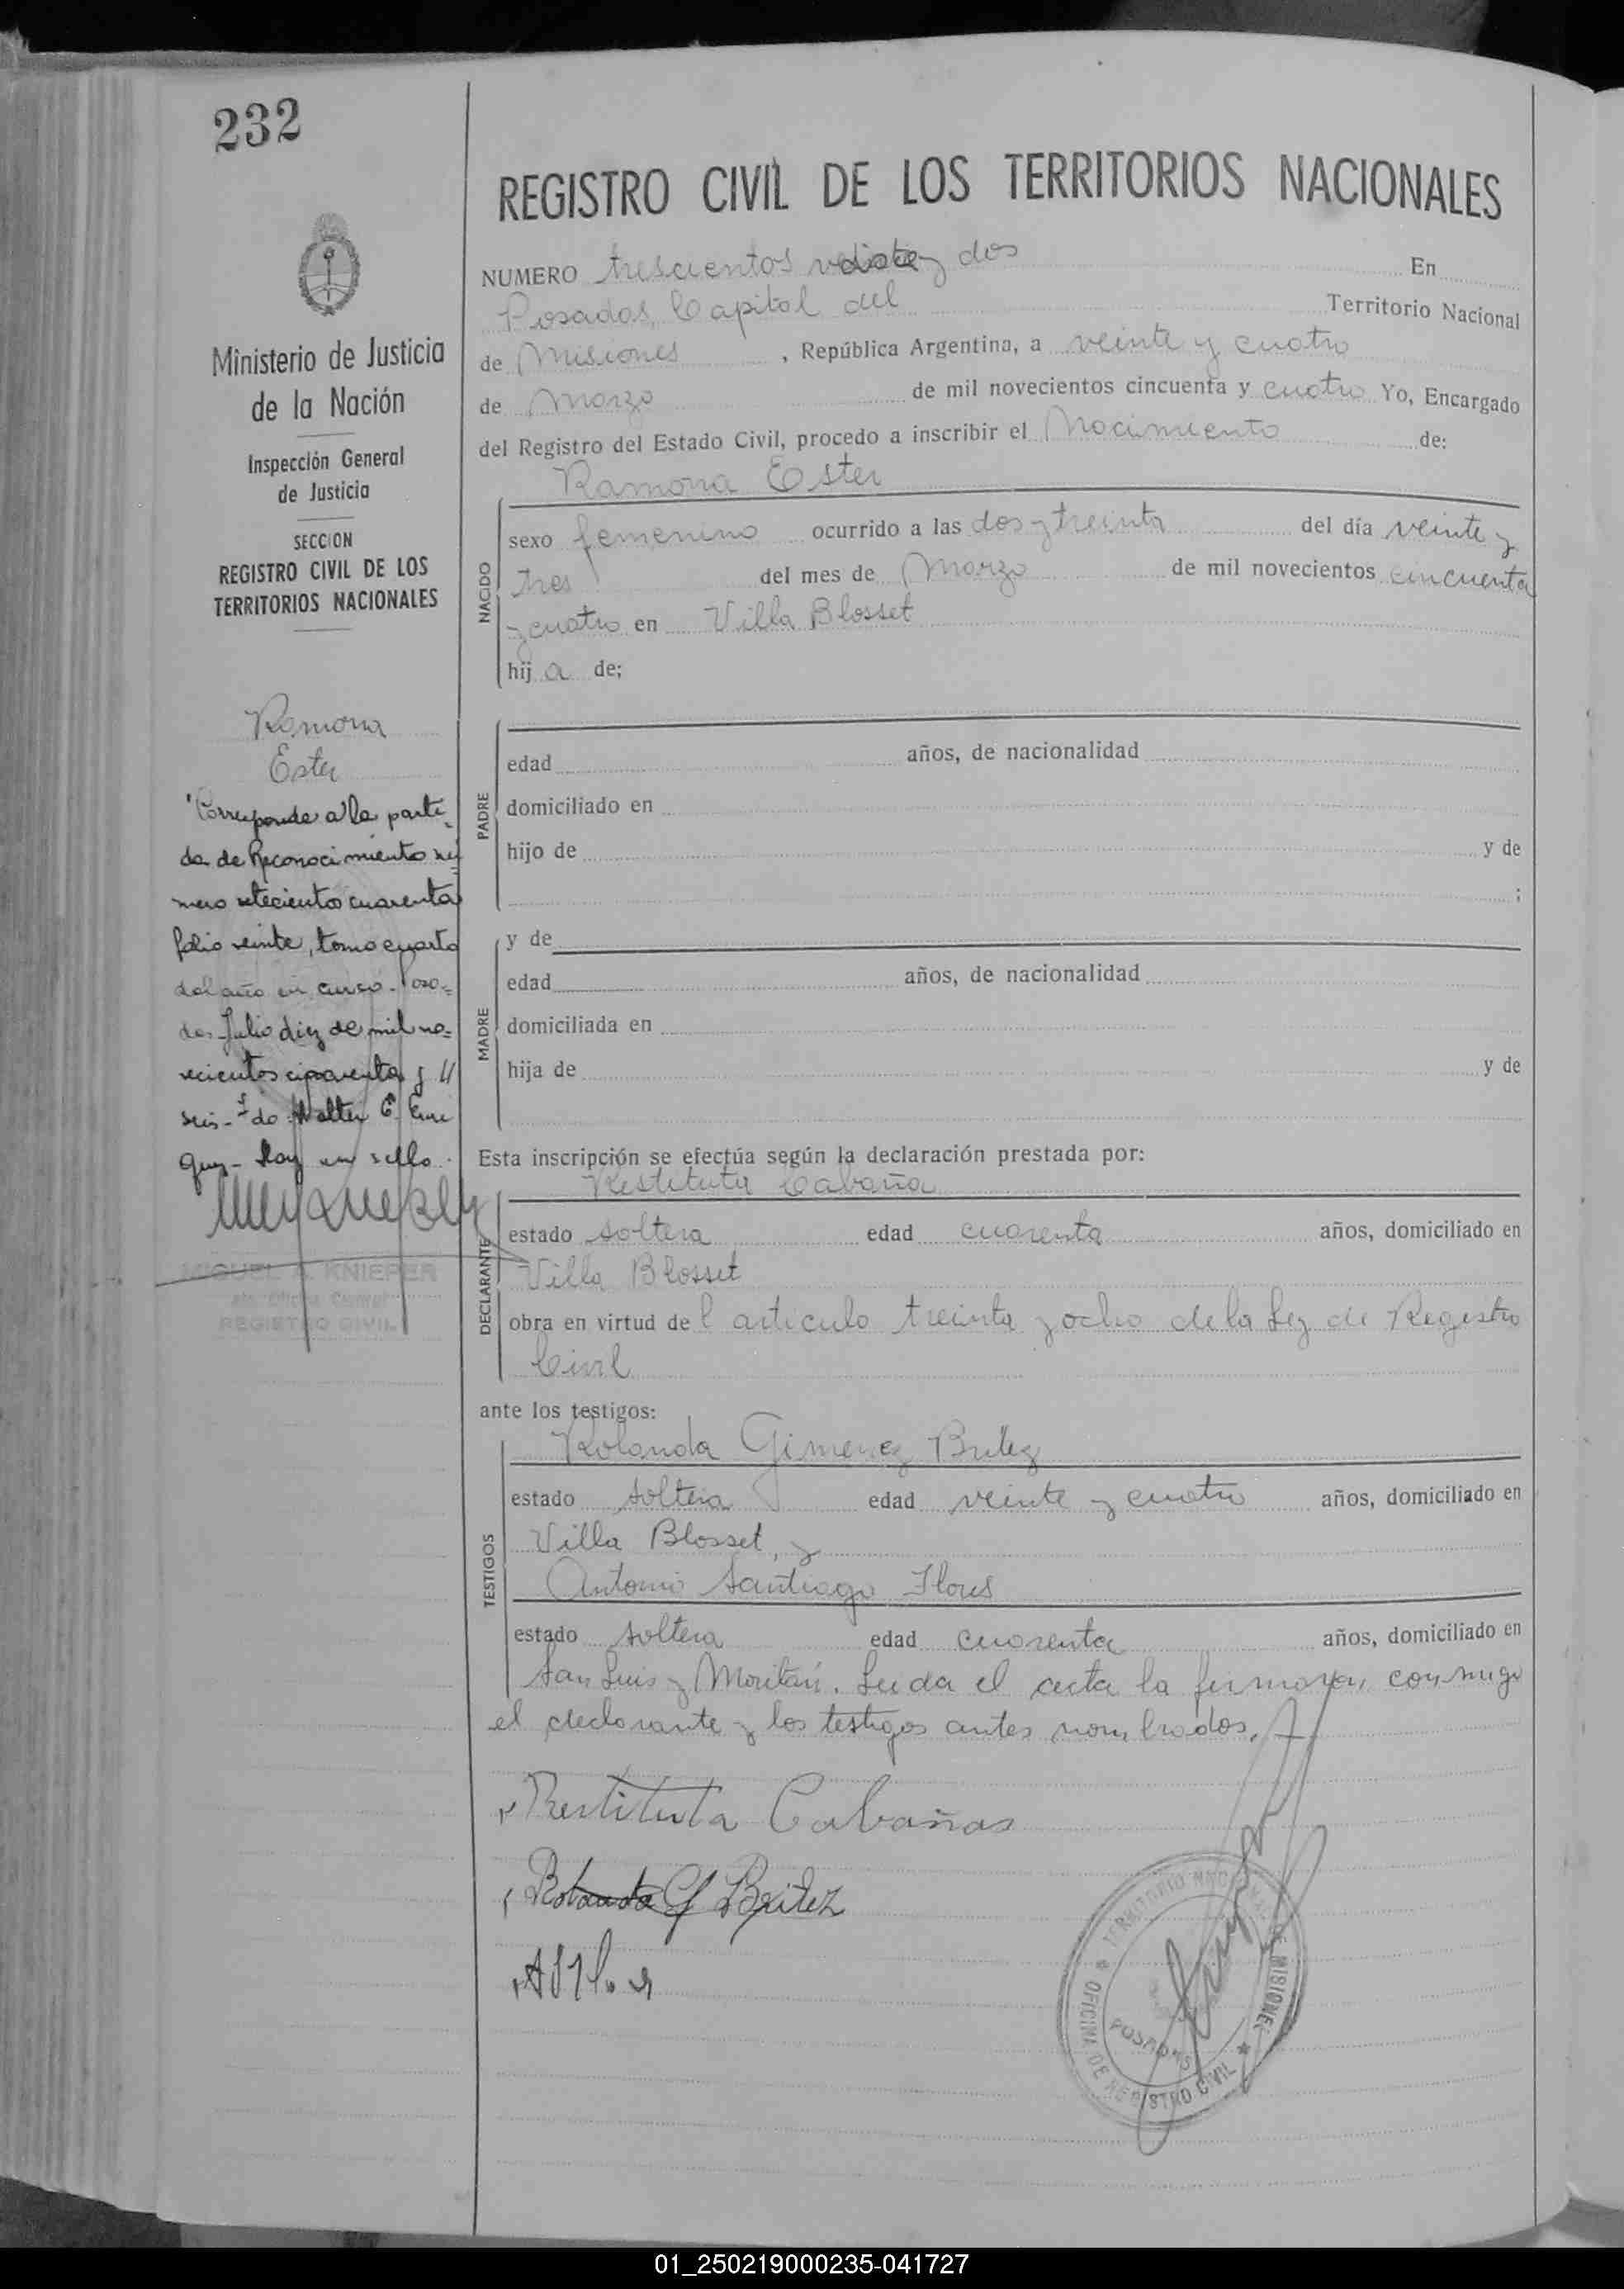 232
Ministerio de Justicia
de la Nación
Inspección General
de Justicia
SECCION
REGISTRO CIVIL DE LOS
TERRITORIOS NACIONALES
Ramona
Ester
Corresponde a la parti-
da de Reconocimiento nú
mero setecientos cuarenta
folio veinte, tomo cuarto
del año en curso. Posa-
das Julio diez de mil no-
vecientos cincuenta y
seis - Fdo Walter E. Enri
quez - Hay un sello.
MIGUEL A. KNIEPER
REGISTRO CIVIL
REGISTRO CIVIL DE LOS TERRITORIOS NACIONALES
NUMERO trescientos y dos En
Posadas, Capital del Territorio Nacional
de Misiones , República Argentina, a veinte y cuatro
de Marzo de mil novecientos cincuenta y cuatro Yo, Encargado
del Registro del Estado Civil, procedo a inscribir el Nacimiento de:
Ramona Ester
NACIDO
sexo femenino ocurrido a las dos y treinta del día veinte y
tres del mes de Marzo de mil novecientos cincuenta
y cuatro en Villa Blosset
hij a de;
PADRE
edad años, de nacionalidad
domiciliado en
hijo de y de
;
MADRE
y de
edad años, de nacionalidad
domiciliada en
hija de y de
Esta inscripción se efectúa según la declaración prestada por:
Restituta Cabaña
DECLARANTE
estado soltera edad cuarenta años, domiciliado en
Villa Blosset
obra en virtud de l articulo treinta y ocho de la Ley de Registro
Civil
ante los testigos:
TESTIGOS
Rolanda Gimenez Britez
estado soltera edad veinte y cuatro años, domiciliado en
Villa Blosset, y
Antonio Santiago Flores
estado soltera edad cuarenta años, domiciliado en
San Luis y Moritán. Leida el acta la firmaron conmigo
el declarante y los testigos antes nombrados.
Restituta Cabañas
Rolanda G Britez
TERRITORIO NACIONAL DE MISIONES
OFICINA DE REGISTRO CIVIL
POSADAS
01_250219000235-041727